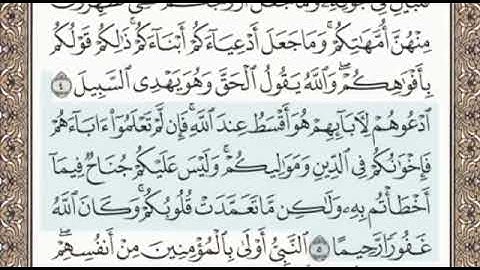 مِنْهُنَّ أُمَّهَٰتِكُمْ ۚ وَمَا جَعَلَ أَدْعِيَآءَكُمْ أَبْنَآءَكُمْ ۚ ذَٰلِكُمْ قَوْلُكُم
بِأَفْوَٰهِكُمْ ۖ وَٱللَّهُ يَقُولُ ٱلْحَقَّ وَهُوَ يَهْدِى ٱلسَّبِيلَ ٤
ٱدْعُوهُمْ لِـَٔابَآئِهِمْ هُوَ أَقْسَطُ عِندَ ٱللَّهِ ۚ فَإِن لَّمْ تَعْلَمُوٓا۟ ءَابَآءَهُمْ
فَإِخْوَٰنُكُمْ فِى ٱلدِّينِ وَمَوَٰلِيكُمْ ۚ وَلَيْسَ عَلَيْكُمْ جُنَاحٌ فِيمَآ
أَخْطَأْتُم بِهِۦ وَلَٰكِن مَّا تَعَمَّدَتْ قُلُوبُكُمْ ۚ وَكَانَ ٱللَّهُ
غَفُورًا رَّحِيمًا ٥ ٱلنَّبِىُّ أَوْلَىٰ بِٱلْمُؤْمِنِينَ مِنْ أَنفُسِهِمْ ۖ